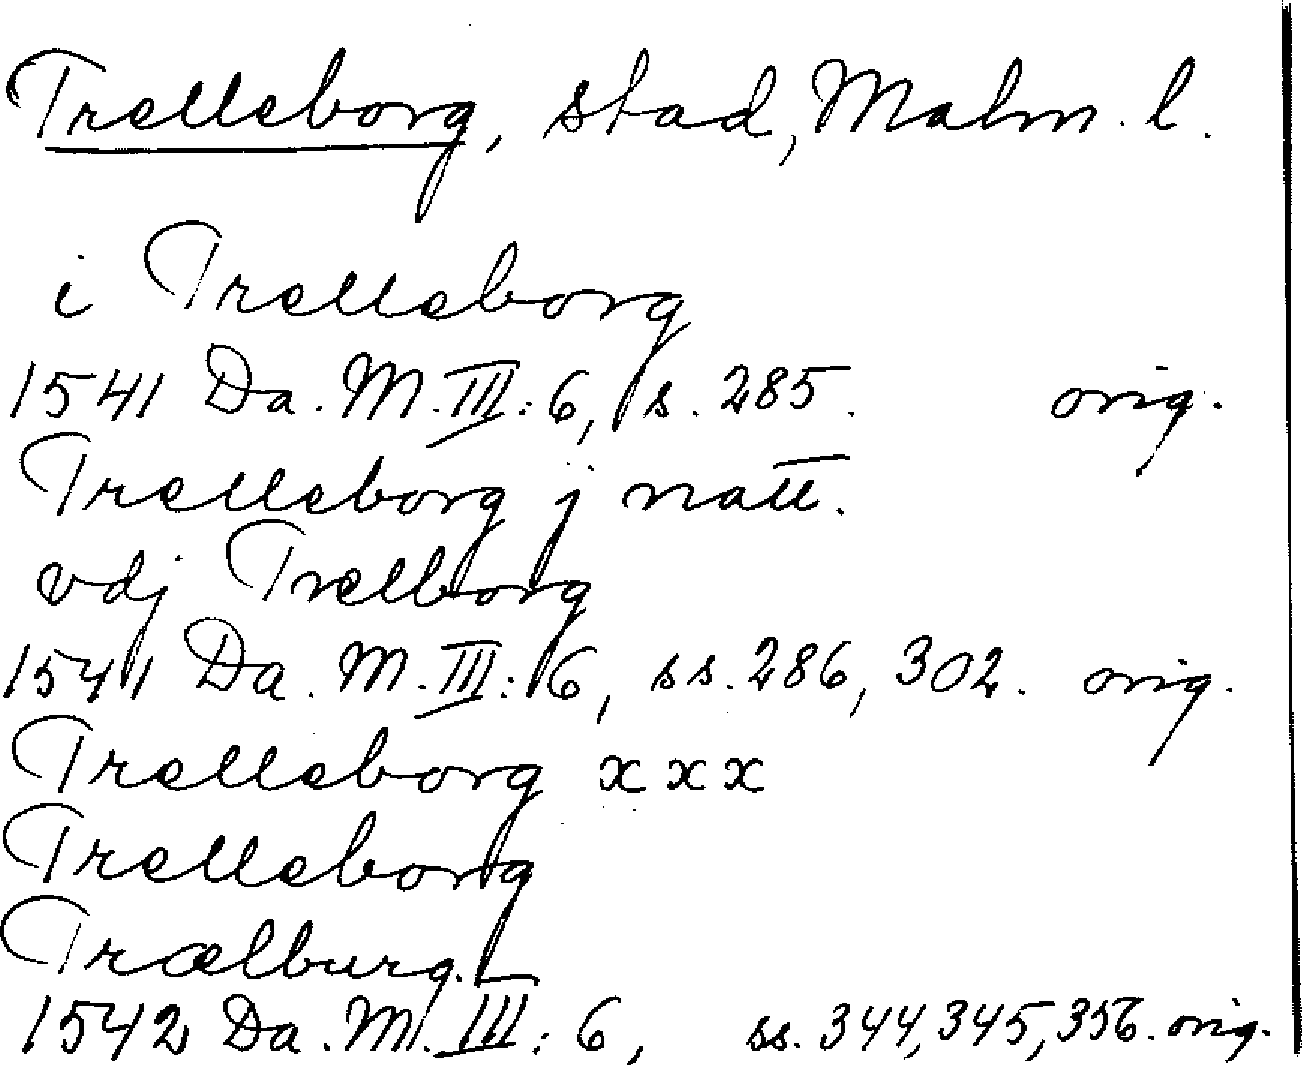 Trelleborg, stad, Malm. l.
i Trelleborg
1541 Da. M. III: 6, s. 285. orig.
Trelleborg j natt.
vdj Trælborg
1541 Da. M. III: 6, ss. 286, 302. orig.
Trelleborg x x x
Trelleborg
Trælburg.
1542 Da. M. III: 6, ss. 344, 345, 356. orig.